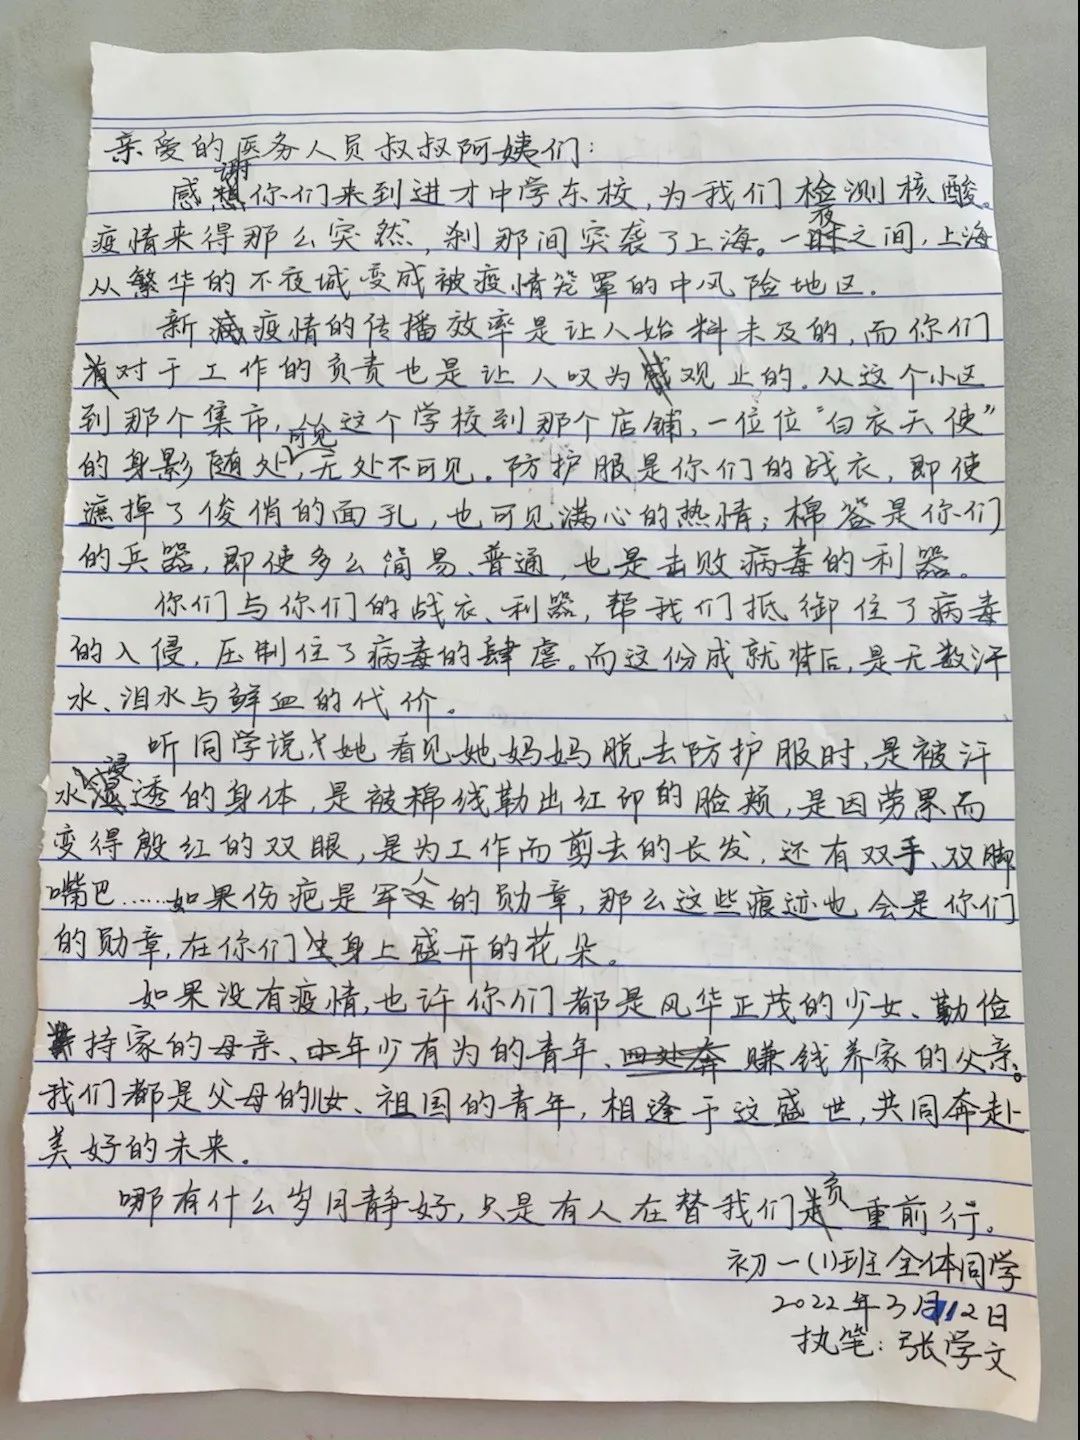 亲爱的医务人员叔叔阿姨们：
感谢你们来到进才中学东校，为我们检测核酸。
疫情来得那么突然，刹那间突袭了上海。一夜之间，上海
从繁华的不夜城变成被疫情笼罩的中风险地区.
新疫情的传播效率是让人始料未及的，而你们
对于工作的负责也是让人叹为观止的.从这个小区
到那个集市，从这个学校到那个店铺，一位位“白衣天使”
的身影随处可见，无处不可见.防护服是你们的战衣，即使
遮掉了俊俏的面孔，也可见满心的热情；棉签是你们
的兵器，即使多么简易、普通，也是击败病毒的利器。
你们与你们的战衣、利器，帮我们抵御住了病毒
的入侵，压制住了病毒的肆虐。而这份成就背后，是无数汗
水、泪水与鲜血的代价.
听同学说，她看见她妈妈脱去防护服时，是被汗
水浸透的身体，是被棉线勒出红印的脸颊，是因劳累而
变得殷红的双眼，是为工作而剪去的长发，还有双手、双脚
嘴巴……如果伤疤是军人的勋章，那么这些痕迹也会是你们
的勋章，在你们身上盛开的花朵。
如果没有疫情，也许你们都是风华正茂的少女、勤俭
持家的母亲、年少有为的青年、赚钱养家的父亲。
我们都是父母的儿女、祖国的青年，相逢于这盛世，共同奔赴
美好的未来.
哪有什么岁月静好，只是有人在替我们负重前行。
初一(1)班全体同学
2022年3月12日
执笔：张学文